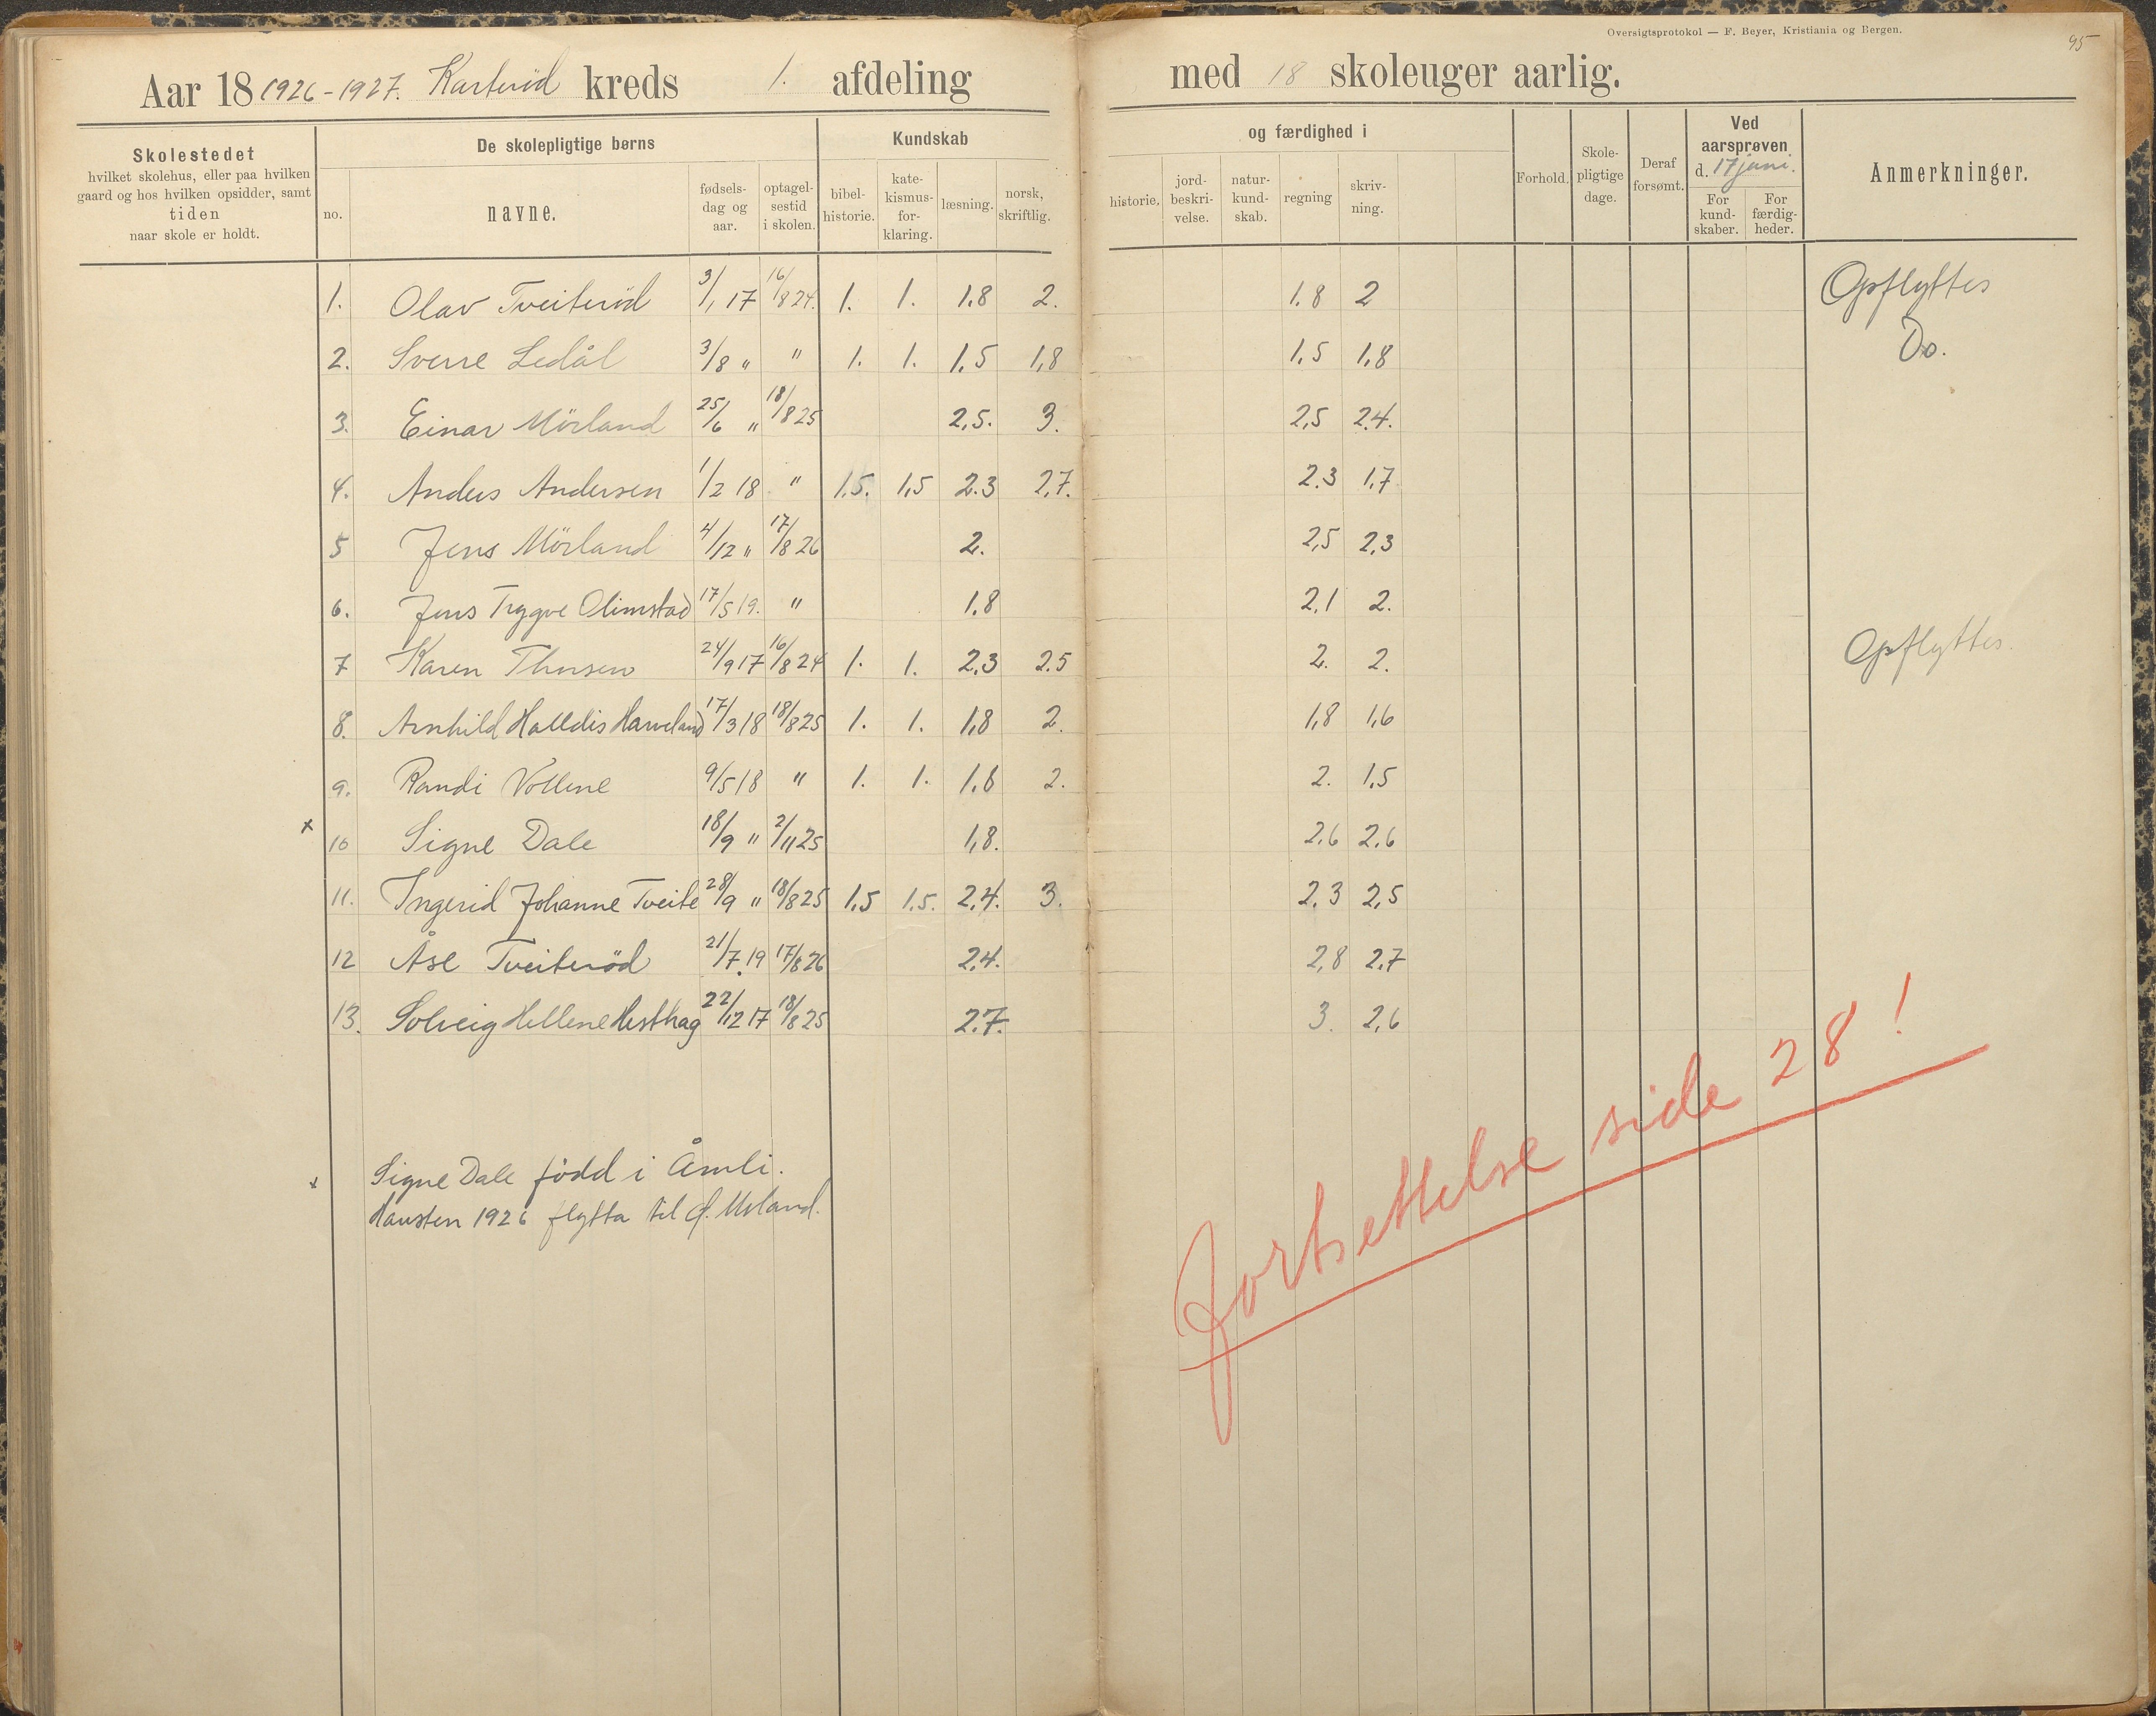 Oversigtsprotokol — F. Beyer, Kristiania og Bergen.
95
Aar 18 1926-1927. Karterød kreds 1. afdeling med 18 skoleuger aarlig.
Skolestedet
hvilket skolehus, eller paa hvilken
gaard og hos hvilken opsidder, samt
tiden
naar skole er holdt.
De skolepligtige børns
no.
navne.
fødsels-
dag og
aar.
optagel-
sestid
i skolen.
Kundskab
bibel-
historie.
kate-
kismus-
for-
klaring.
læsning.
norsk,
skriftlig.
og færdighed i
historie.
jord-
beskri-
velse.
natur-
kund-
skab.
regning
skriv-
ning.
Forhold.
Skole-
pligtige
dage.
Deraf
forsømt.
Ved
aarsprøven
d. 17 juni.
For
kund-
skaber.
For
færdig-
heder.
Anmerkninger.
1. Olav Tveiterød 3/1 17 16/8 24. 1. 1. 1.8 2. 1.8 2 Opflyttes
2. Sverre Ledål 3/8 " " 1. 1. 1.5 1,8 1,5 1,8 Do.
3. Einar Mörland 25/6 " 18/8 25 2,5. 3. 2,5 2.4.
4. Anders Andersen 1/2 18 " 1.5. 1,5 2.3 2,7. 2.3 1,7
5 Jens Mörland 4/12 " 17/8 26 2. 2,5 2,3
6. Jens Trygve Olimstad 17/5 19. " 1.8 2,1 2.
7 Karen Thorsen 24/9 17 16/8 24 1. 1. 2,3 2.5 2. 2. Opflyttes.
8. Arnhild Halldis Harveland 17/3 18 18/8 25 1. 1. 1,8 2. 1,8 1,6
9. Randi Vollene 9/5 18 " 1. 1. 1.6 2. 2. 1.5
x 10 Signe Dale 18/9 " 2/11 25 1,8. 2.6 2.6
11. Ingerid Johanne Tveite 28/9 " 18/8 25 1.5 1.5. 2,4. 3. 2,3 2,5
12 Åse Tveiterød 21/7 19 17/8 26 2,4. 2,8 2,7
13. Solveig Hellene Hesthag 22/12 17 18/8 25 2.7. 3. 2,6
x Signe Dale född i Åmli.
Hausten 1926 flytta til Ø. Moland.
Fortsettelse side 28!